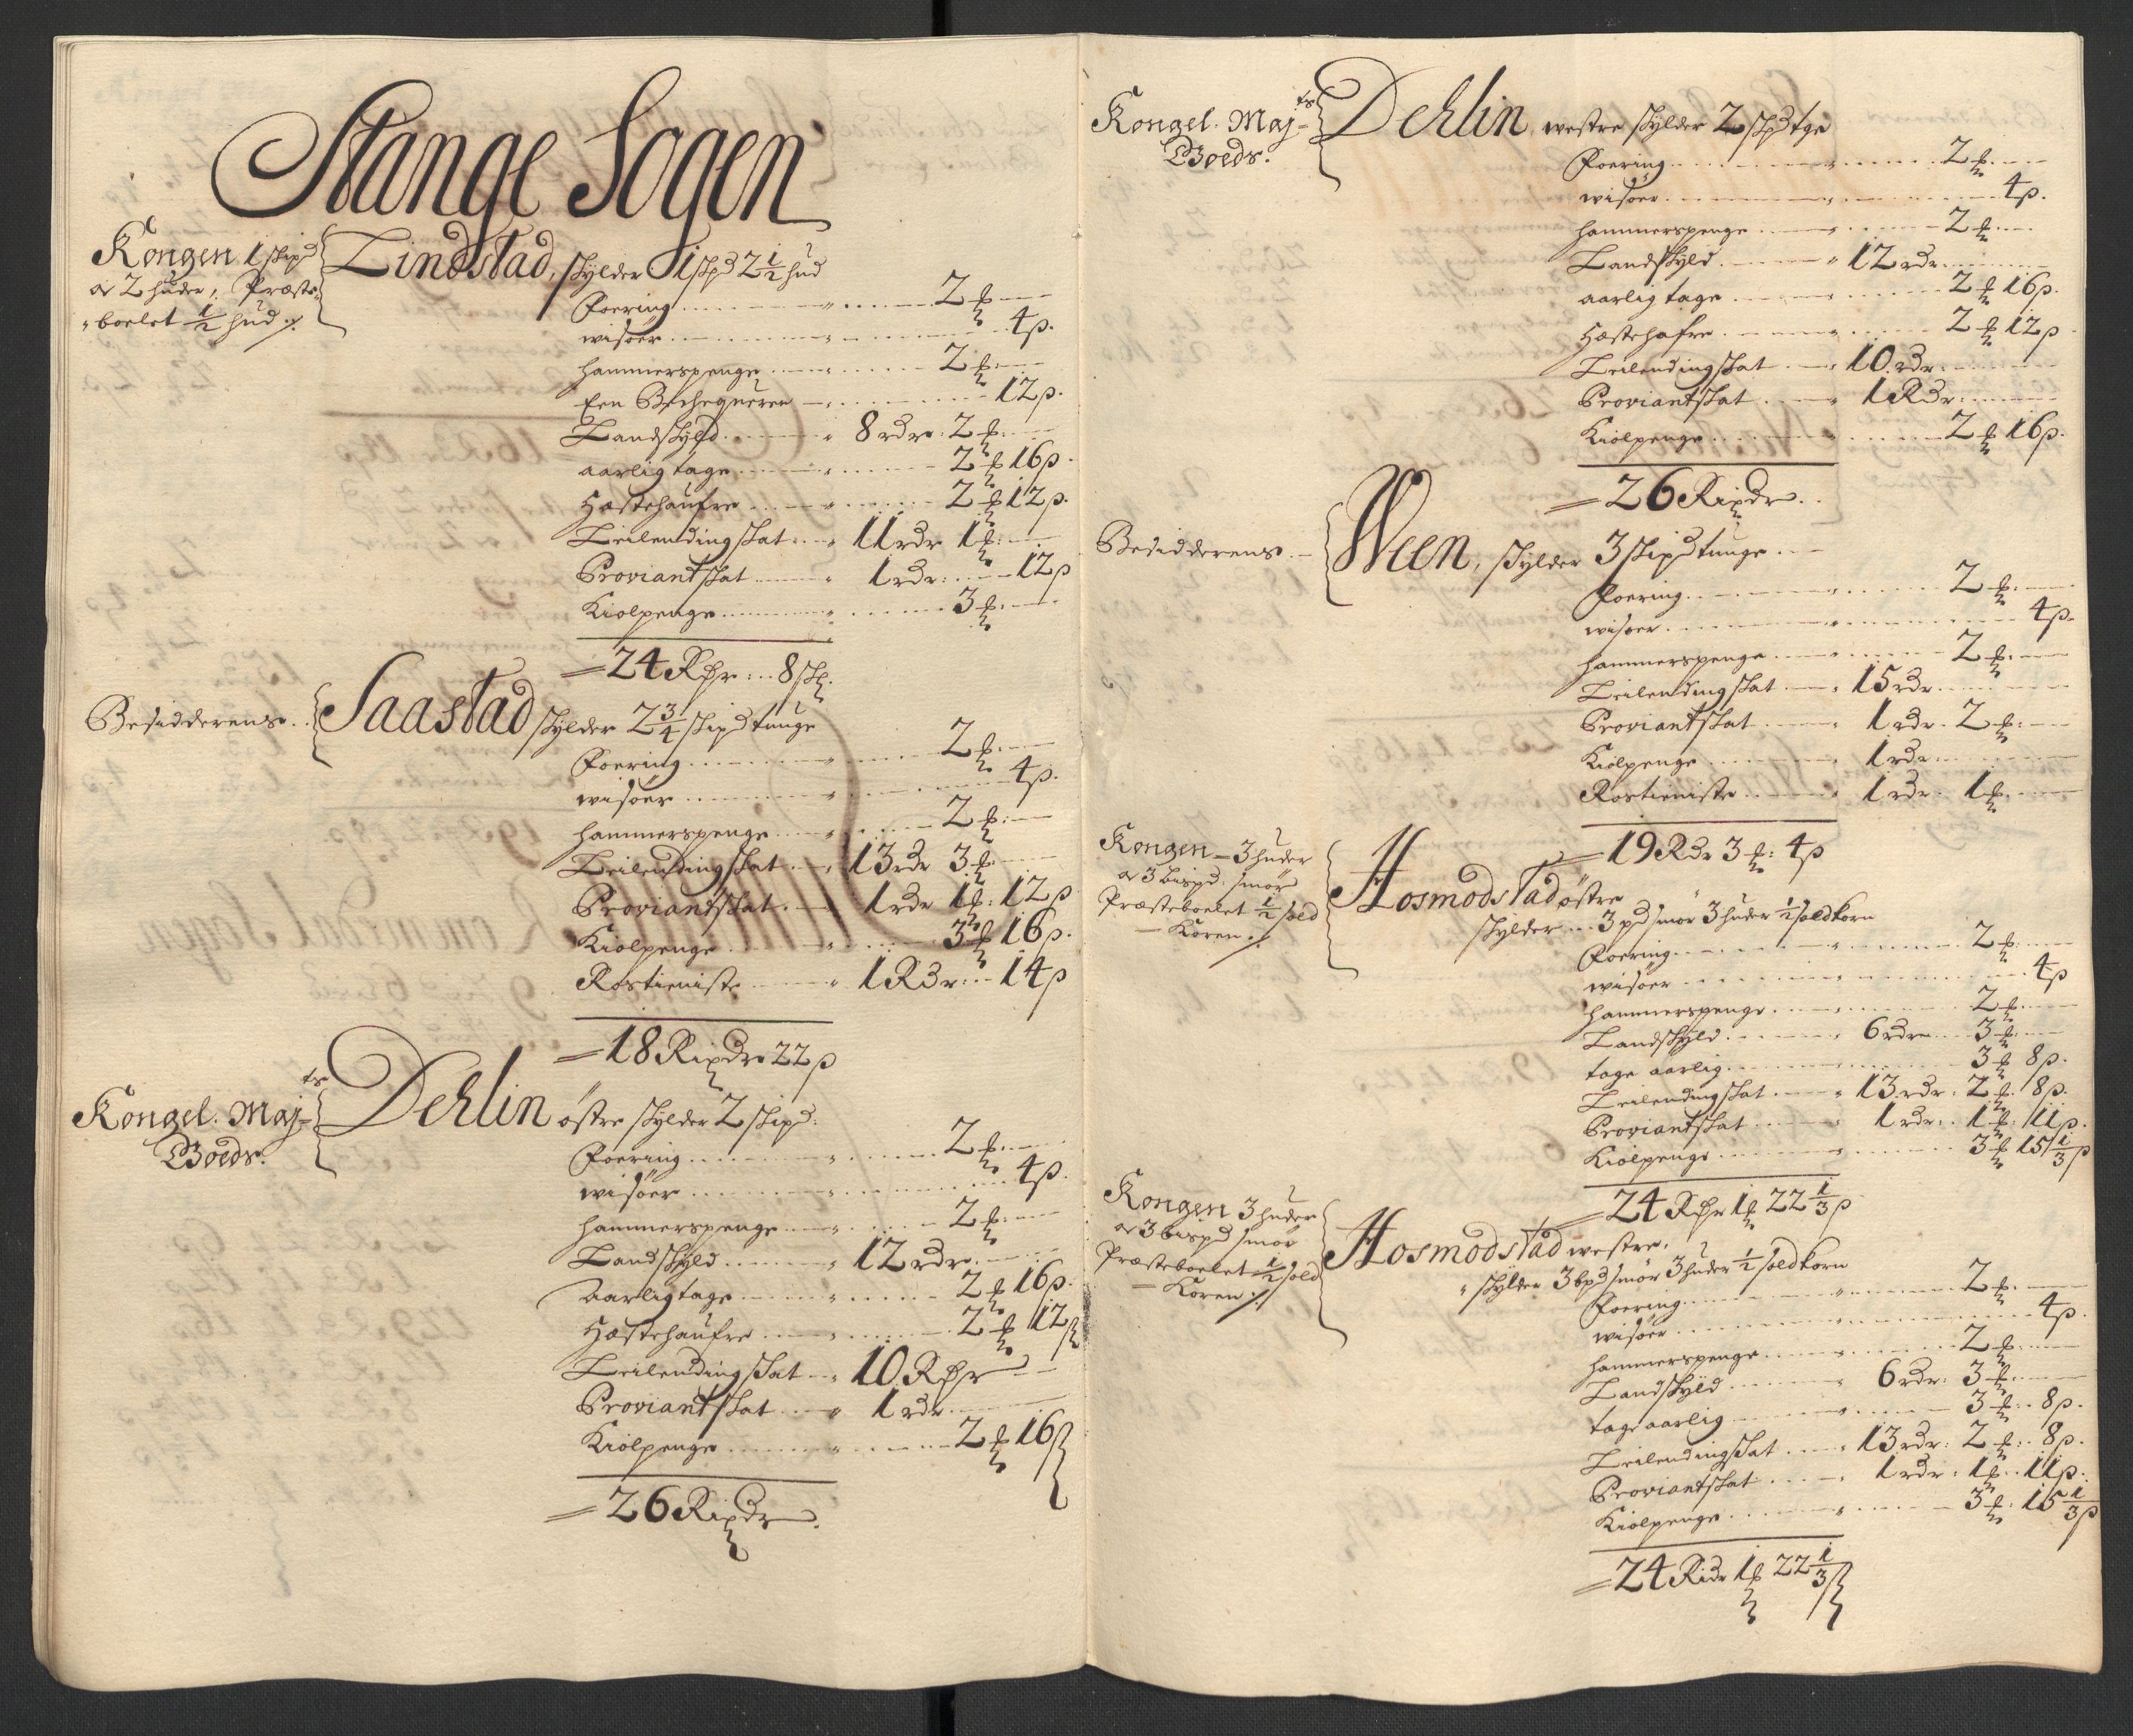 Stange Sogen
Kongen 1 skipd
or 2 huder, Præste-
boelet 1/2 hud ./.
Lindstad, skylder 1 skpd 2 1/2 hud
Foering 2 ℔
wisöer 4 ß.
hammerspenge 2 ℔
Een 12 ß.
Landskyld 8 rdr. 2 ℔
aarlig tage 2 ℔ 16 ß.
Hæstehaufre 2 ℔ 12 ß.
Leilendingskat 11 rdr 1 ℔
Proviantskat 1 rdr: 12 ß
Kiolpenge 3 ℔
= 24 Rdr: 8 sk.
Besidderens. Saastad skylder 2 3/4 skipd tunge
Foering 2 ℔
wisöer 4 ß.
hammerspenge 2 ℔
Leilendingskat 13 rdr 3 ℔
Proviandtskat 1 rdr 1 ℔: 12 ß
Kiolpenge 3 ℔ 16 ß.
Rostieniste 1 Rdr: 14 ß
= 18 Rixdr 22 ß
Kongel. Maj-ts
Goeds.
Dehlin östre skylder 2 skipd:
Foering 2 ℔
wisöer 4 ß.
hammerspenge 2 ℔
Landskyld 12 rdr.
Aarlig tage 2 ℔ 16 ß.
Hæstehaufre 2 ℔ 12 ß
Leilendingskat 10 Rdr
Proviantskat 1 rdr
Kiolpenge 2 ℔ 16 ß
= 26 Rixdr.
Kongel. Maj-ts
Goeds.
Dehlin westre skylder 2 skpd tge
Foering 2 ℔
wisöer 4 ß.
hammerspenge 2 ℔
Landskyld 12 rdr.
aarlig tage 2 ℔ 16 ß.
Hæstehafre 2 ℔ 12 ß
Leilendingskat 10 rdr.
Proviantskat 1 Rdr.
Kiölpenge 2 ℔ 16 ß.
= 26 Rixdr.
Besidderens. Ween, skylder 3 skipd tunge
Foering 2 ℔
wisöer 4 ß.
hammerspenge 2 ℔
Leilendingskat 15 rdr
Proviantskat 1 rdr. 2 ℔
Kiölpenge 1 rdr.
Rostieniste 1 rdr. 1 ℔
= 19 Rdr 3 ℔: 4 ß
Kongen 3 huder
or 3 bispd. smör
Præsteboelet 1/2 sold
Koren ./.
Hosmodstad östre
skylder 3 pd smör 3 huder 1/2 sold korn
Foering 2 ℔
wisöer 4 ß
hammerspenge 2 ℔
Landskyld 6 rdr 3 ℔
tage aarlig 3 ℔ 8 ß.
Leilendingskat 13 rdr. 2 ℔. 8 ß.
Proviantskat 1 rdr. 1 ℔. 11 ß.
Kiolpenge 3 ℔ 15 1/3 ß
= 24 Rdr 1 ℔ 22 1/3 ß
Kongen 3 huder
or 3 bispd smör
Præsteboelet 1/2 sold
Koren ./.
Hosmodstad westre,
skylder 3 bpd smör 3 huder 1/2 sold korn
Foering 2 ℔
wisöer 4 ß.
hammerspenge 2 ℔
Landskyld 6 rdr. 3 ℔
tage aarlig 3 ℔ 8 ß.
Leilendingskat 13 rdr. 2 ℔. 8 ß.
Proviantskat 1 rdr. 1 ℔. 11 ß.
Kiölpenge 3 ℔. 15 1/3 ß
= 24 Ridr 1 ℔ 22 1/3 ß